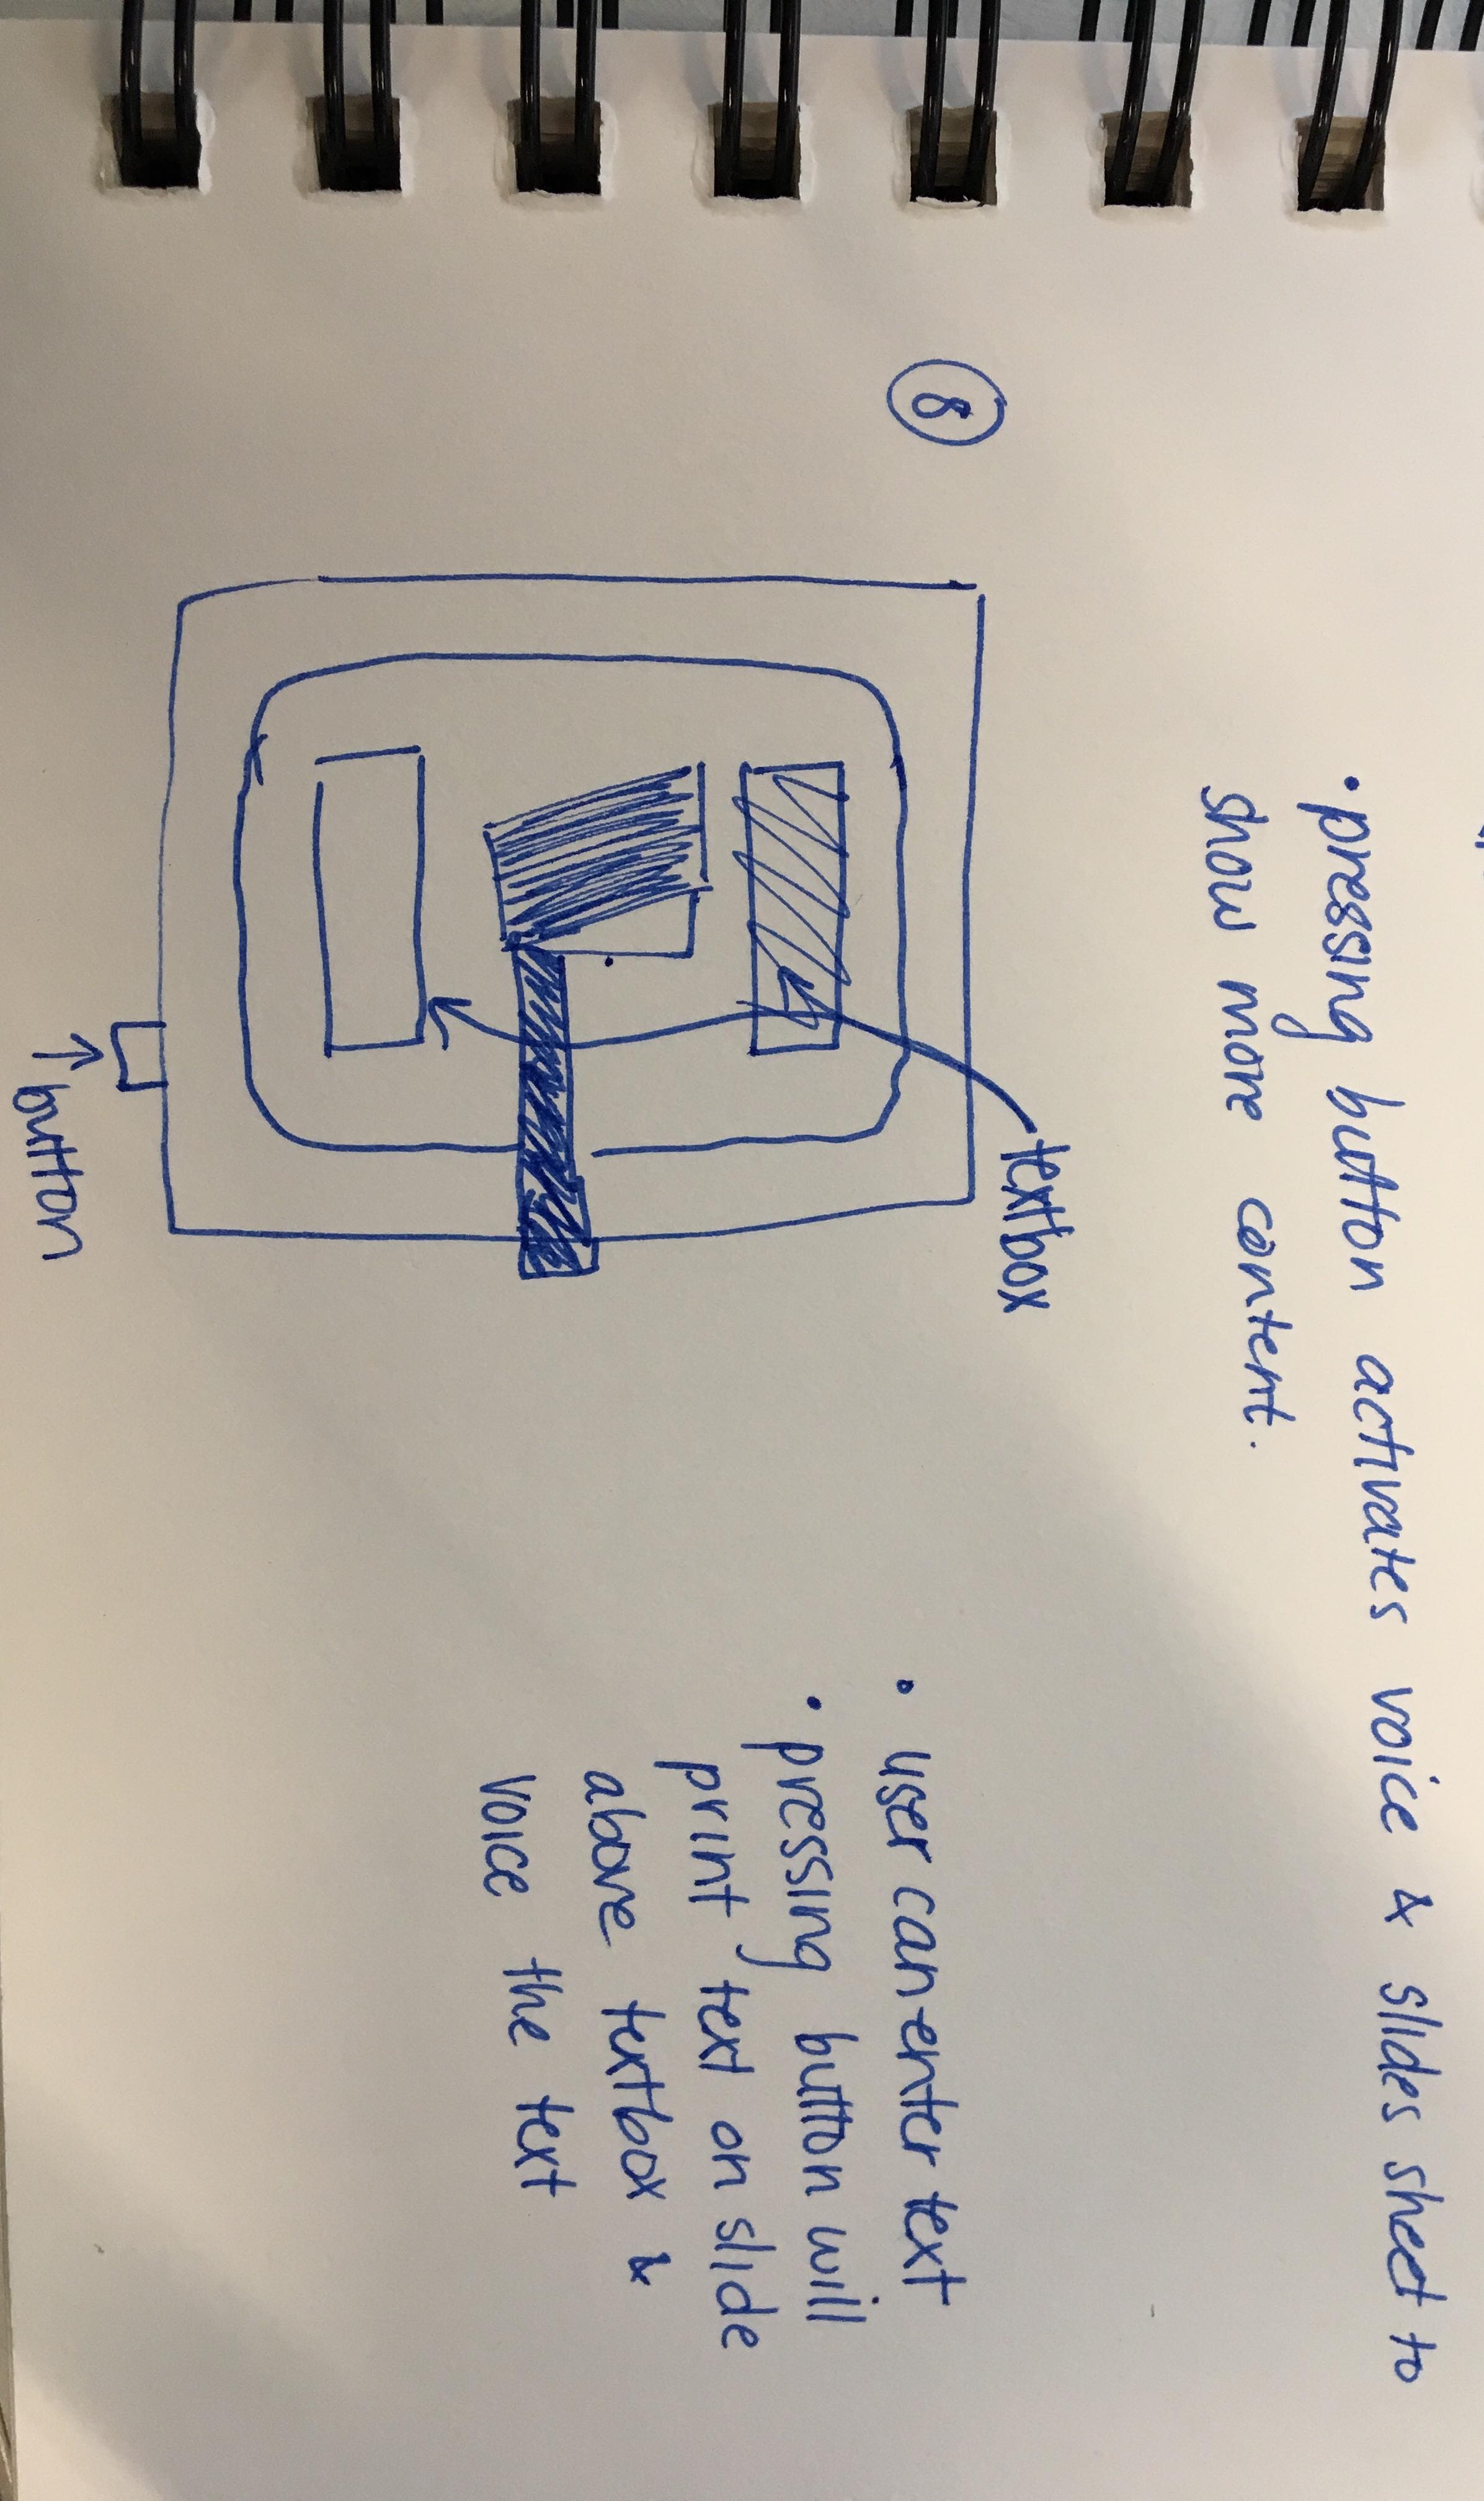 • pressing button activates voice & slides sheet to
show more content.
8
textbox
button
• user can enter text
• pressing button will
print text on slide
above textbox &
voice the text